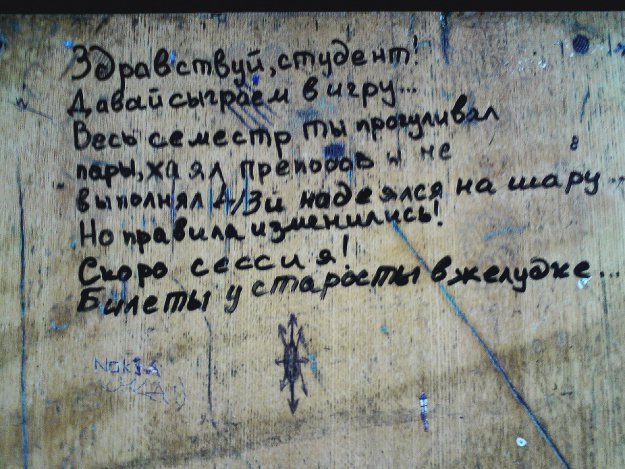 Здравствуй, студент!
Давай сыграем в игру...
Весь семестр ты прогуливал
пары, хаял преподов и не
выполнял Д/З и надеялся на шару...
Но правила изменились!
Скоро сессия!
Билеты у старосты в желудке...
NOKIA